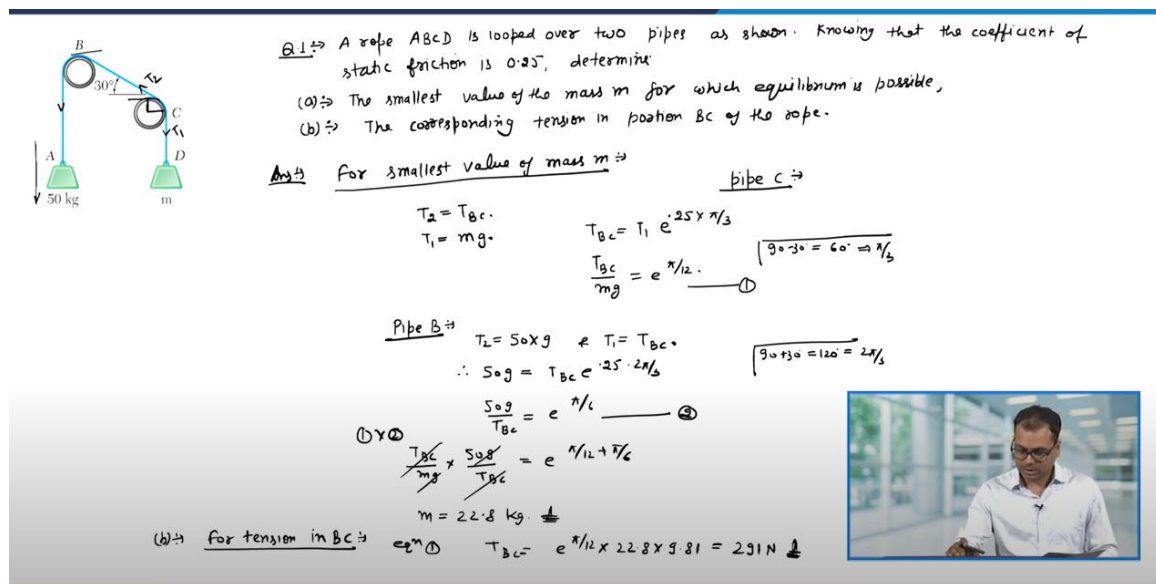 Q.1:→ A rope ABCD is looped over two pipes as shown. Knowing that the coefficient of
static friction is 0.25, determine
(a):→ The smallest value of the mass m for which equilibrium is possible,
(b):→ The corresponding tension in portion BC of the rope.
B
30°
T2
C
T1
A
D
50 kg
m
Ans:→ For smallest value of mass m:→
pipe C:→
T₂ = T_BC.
T₁ = mg.
T_BC = T₁ e^.25×π/3
90-30° = 60° ⇒ π/3
T_BC/mg = e^π/12. ①
Pipe B:→
T₂ = 50×g & T₁ = T_BC.
90+30° = 120° = 2π/3
∴ 50g = T_BC e^.25·2π/3
50g/T_BC = e^π/6 ②
①×②
T_BC/mg × 50g/T_BC = e^π/12+π/6
m = 22.8 kg.
(b):→ For tension in BC:→ eqⁿ ① T_BC = e^π/12 × 22.8 × 9.81 = 291 N